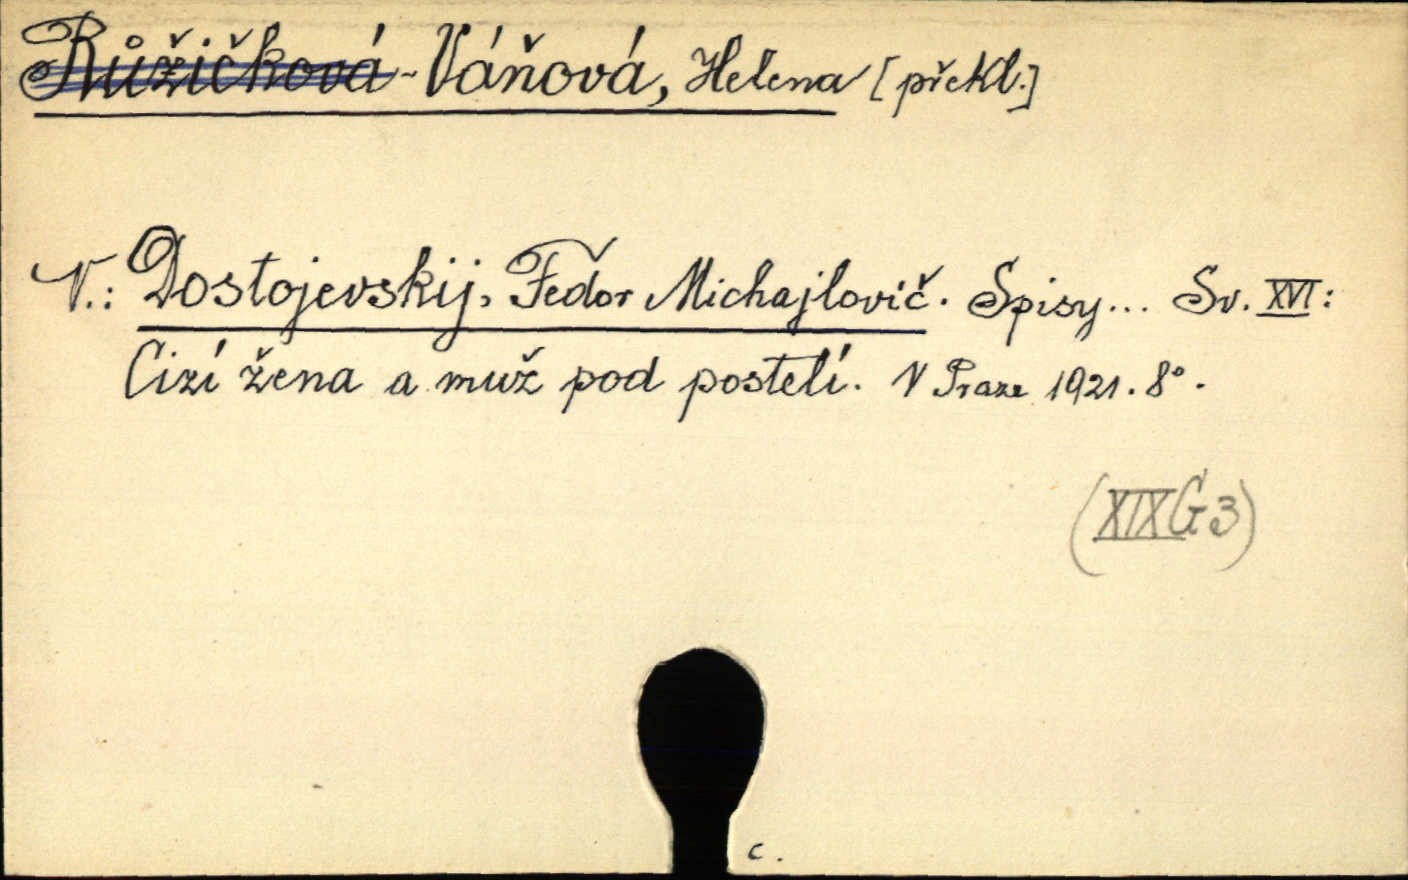 Růžičková-Váňová, Helena [překl.]
V.: Dostojevskij, Fedor Michajlovič. Spisy... Sv. XVI:
Cizí žena a muž pod postelí. V Praze 1921. 8°.
(XIX G 3)
c.